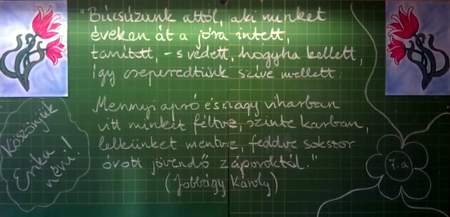 "Búcsúzunk attól, aki minket
éveken át a jóra intett,
tanított, - s védett, hogyha kellett,
így cseperedtünk szíve mellett.
Mennyi apró és nagy viharban
vitt minket féltve, szinte karban,
lelkünket mentve, feddve sokszor
óvott jövendő záporoktól."
(Jobbágy Károly)
Köszönjük
Erika
néni!
4.a